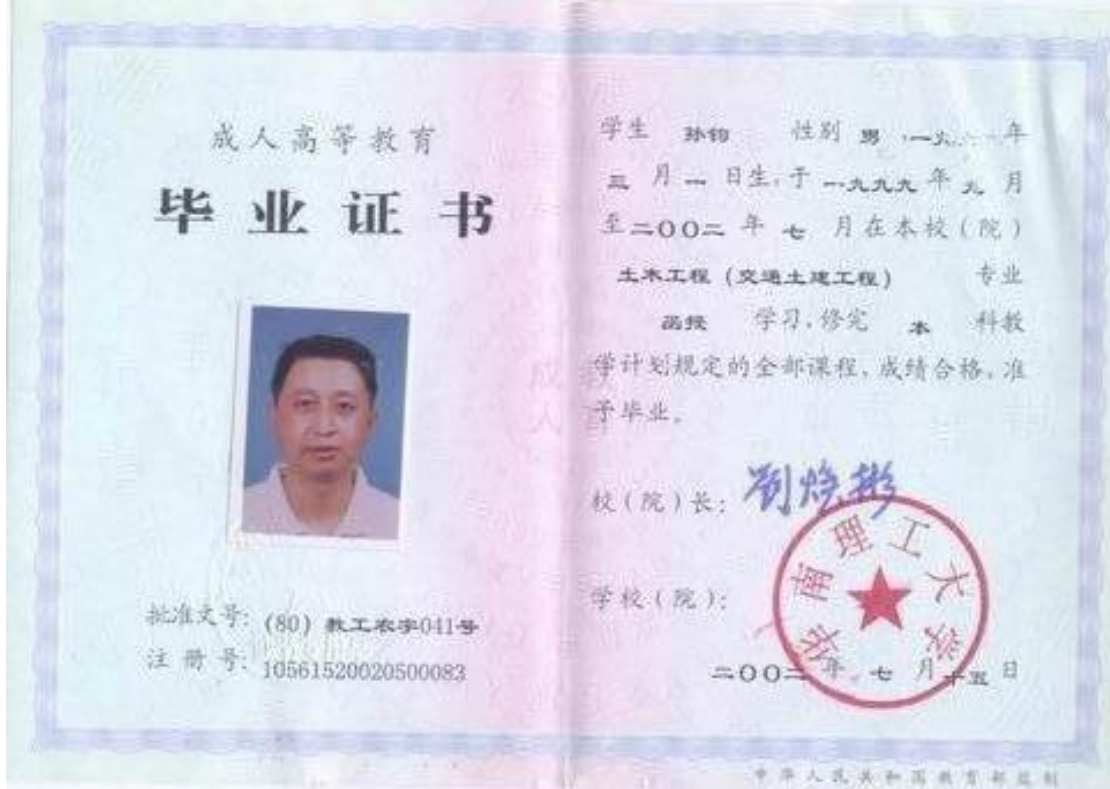 成人高等教育
毕业证书
批准文号: (80) 教工农字041号
注册号: 105615200205000​83
学生 孙钧 性别 男 ,一九六 年
三 月 一 日生,于 一九九九 年 九 月
至 二〇〇二 年 七 月在本校(院)
土木工程 (交通土建工程) 专业
函授 学习,修完 本 科教
学计划规定的全部课程,成绩合格,准
予毕业。
校(院)长: 刘焕彬
华南理工大学
学校(院):
二〇〇二 年 七 月 十五 日
中华人民共和国教育部监制